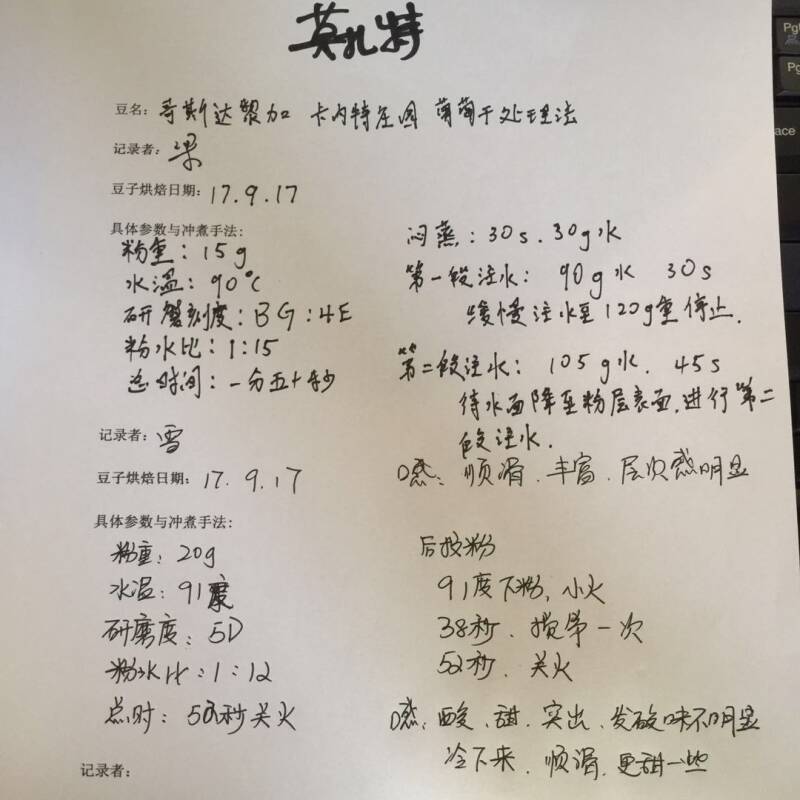 莫扎特
豆名：哥斯达黎加 卡内特庄园 葡萄干处理法
记录者：梁
豆子烘焙日期：17.9.17
具体参数与冲煮手法：
粉重：15g
水温：90℃
研磨刻度：BG：4E
粉水比：1:15
总时间：一分五十秒
闷蒸：30s．30g水
第一段注水：90g水 30s
缓慢注水至120g重停止．
第二段注水：105g水．45s
待水面降至粉层表面，进行第二
段注水．
口感：顺滑．丰富．层次感明显
记录者：雪
豆子烘焙日期：17.9.17
具体参数与冲煮手法：
粉重：20g
水温：91度
研磨度：5D
粉水比：1:12
总时：52秒关火
后投粉
91度下粉，小火
38秒．搅第一次
52秒．关火
口感：酸．甜．突出．发酸味不明显
冷下来．顺滑．更甜一些
记录者：
Pg
Pg
ace